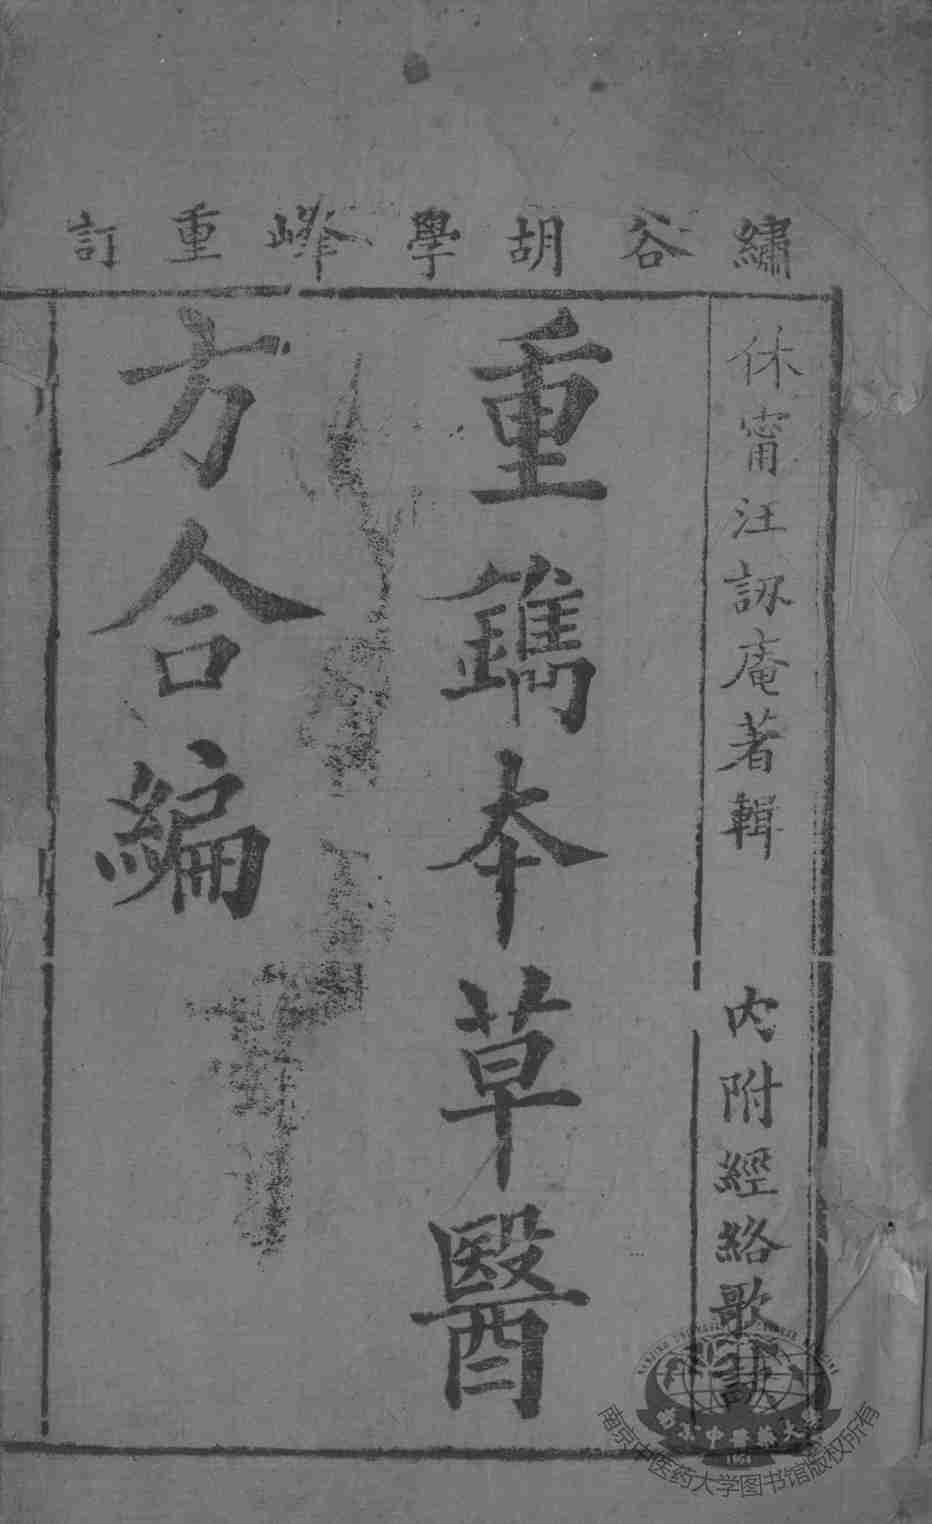 繡谷胡學峰重訂
休甯汪訒庵著輯　內附經絡歌訣
重鐫本草醫
方合編
南京中医药大学图书馆版权所有
1954